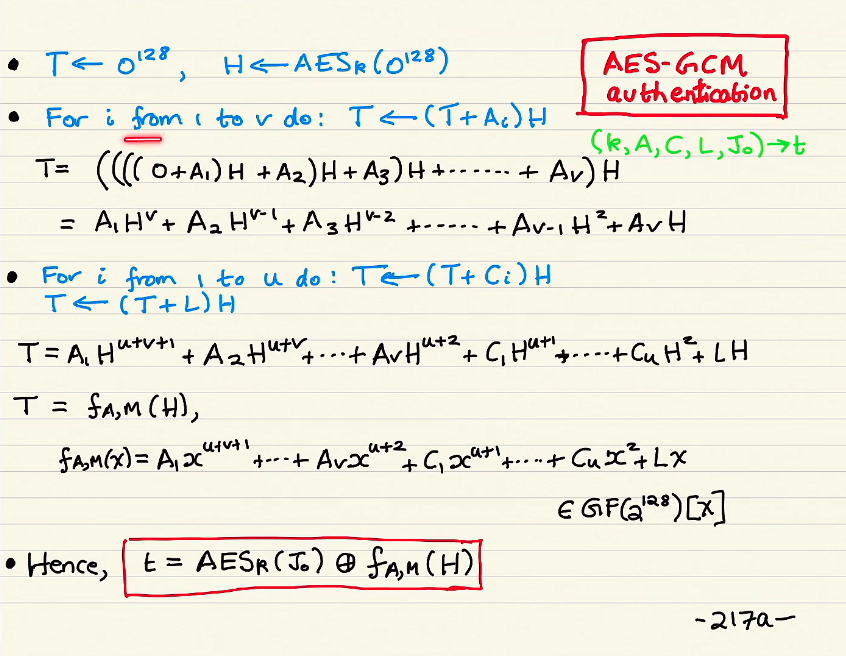 • T ← 0¹²⁸, H ← AESₖ(0¹²⁸)
AES-GCM
authentication
• For i from 1 to v do: T ← (T+Aᵢ)H
(k, A, C, L, J₀) → t
T = ((((0+A₁)H + A₂)H + A₃)H + ...... + Av)H
= A₁H^v + A₂H^{v-1} + A₃H^{v-2} + ...... + A_{v-1}H² + AvH
• For i from 1 to u do: T ← (T+Cᵢ)H
T ← (T+L)H
T = A₁H^{u+v+1} + A₂H^{u+v} + ... + AvH^{u+2} + C₁H^{u+1} + .... + CuH² + LH
T = f_{A,M}(H),
f_{A,M}(x) = A₁x^{u+v+1} + ... + Avx^{u+2} + C₁x^{u+1} + .... + Cux² + Lx
∈ GF(2¹²⁸)[x]
• Hence, t = AESₖ(J₀) ⊕ f_{A,M}(H)
-217a-